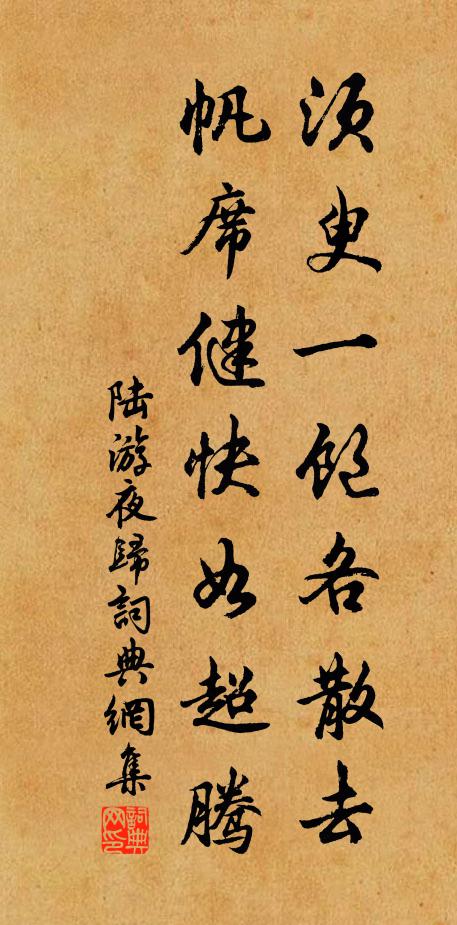 须臾一饱各散去
帆席健快如超腾
陆游夜歸詞典網集
詞典网印